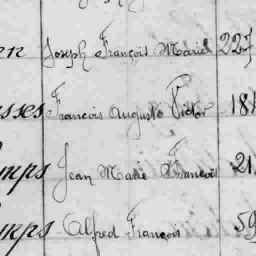 en Joseph François Marie 227
sses Francois Auguste Victor 181
mps Jean Marie François 21
mps Alfred François 59